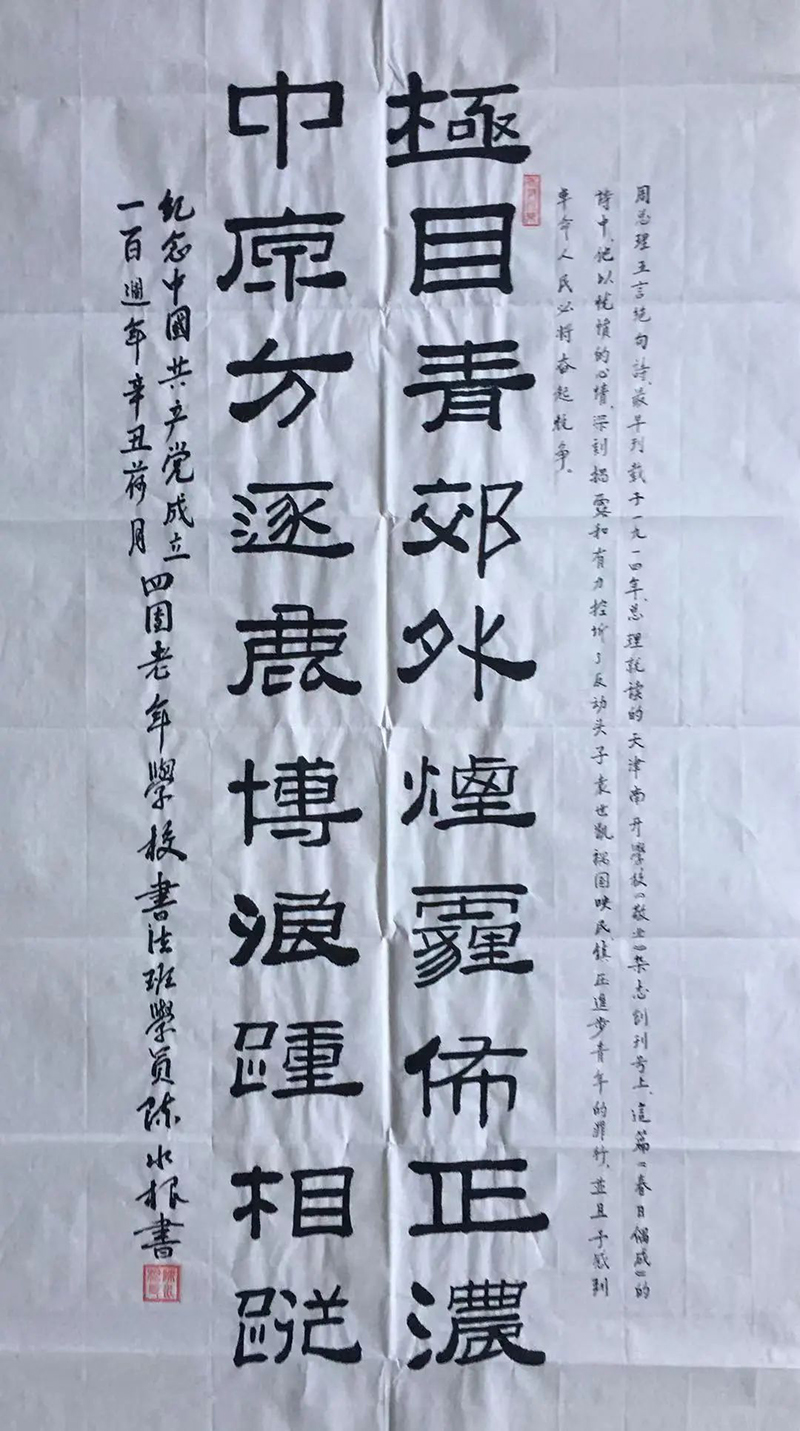 周总理五言绝句詩、最早刊载于一九一四年、总理就读的天津南开學校《敬业》杂志创刊号上、這篇《春日偶成》的
詩中、他以忧愤的心情、深刻揭露和有力控诉了反动头子袁世凱祸国殃民镇压進步青年的罪行、並且予感到
革命人民必将奋起抗争、
極目青郊外煙霾佈正濃
中原方逐鹿博浪踵相蹤
紀念中國共产党成立
一百週年辛丑荷月
四团老年學校書法班學员陈水根書